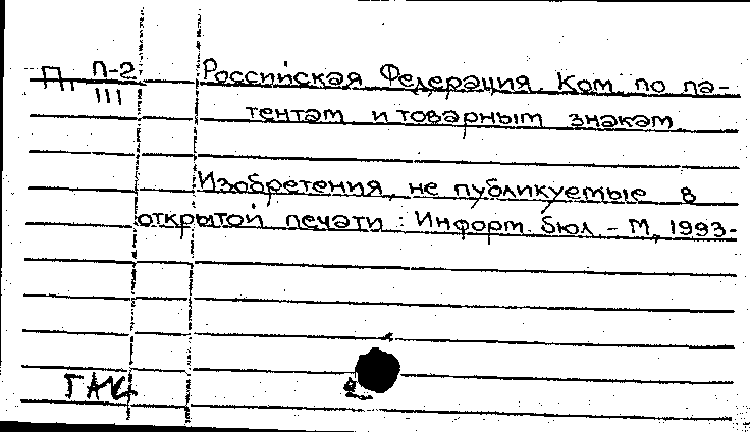 П, П-2 Российская Федерация. Ком. по па-
III
тентам и товарным знакам.
Изобретения, не публикуемые в
открытой печати : Информ. бюл. – М, 1993-
ГАК